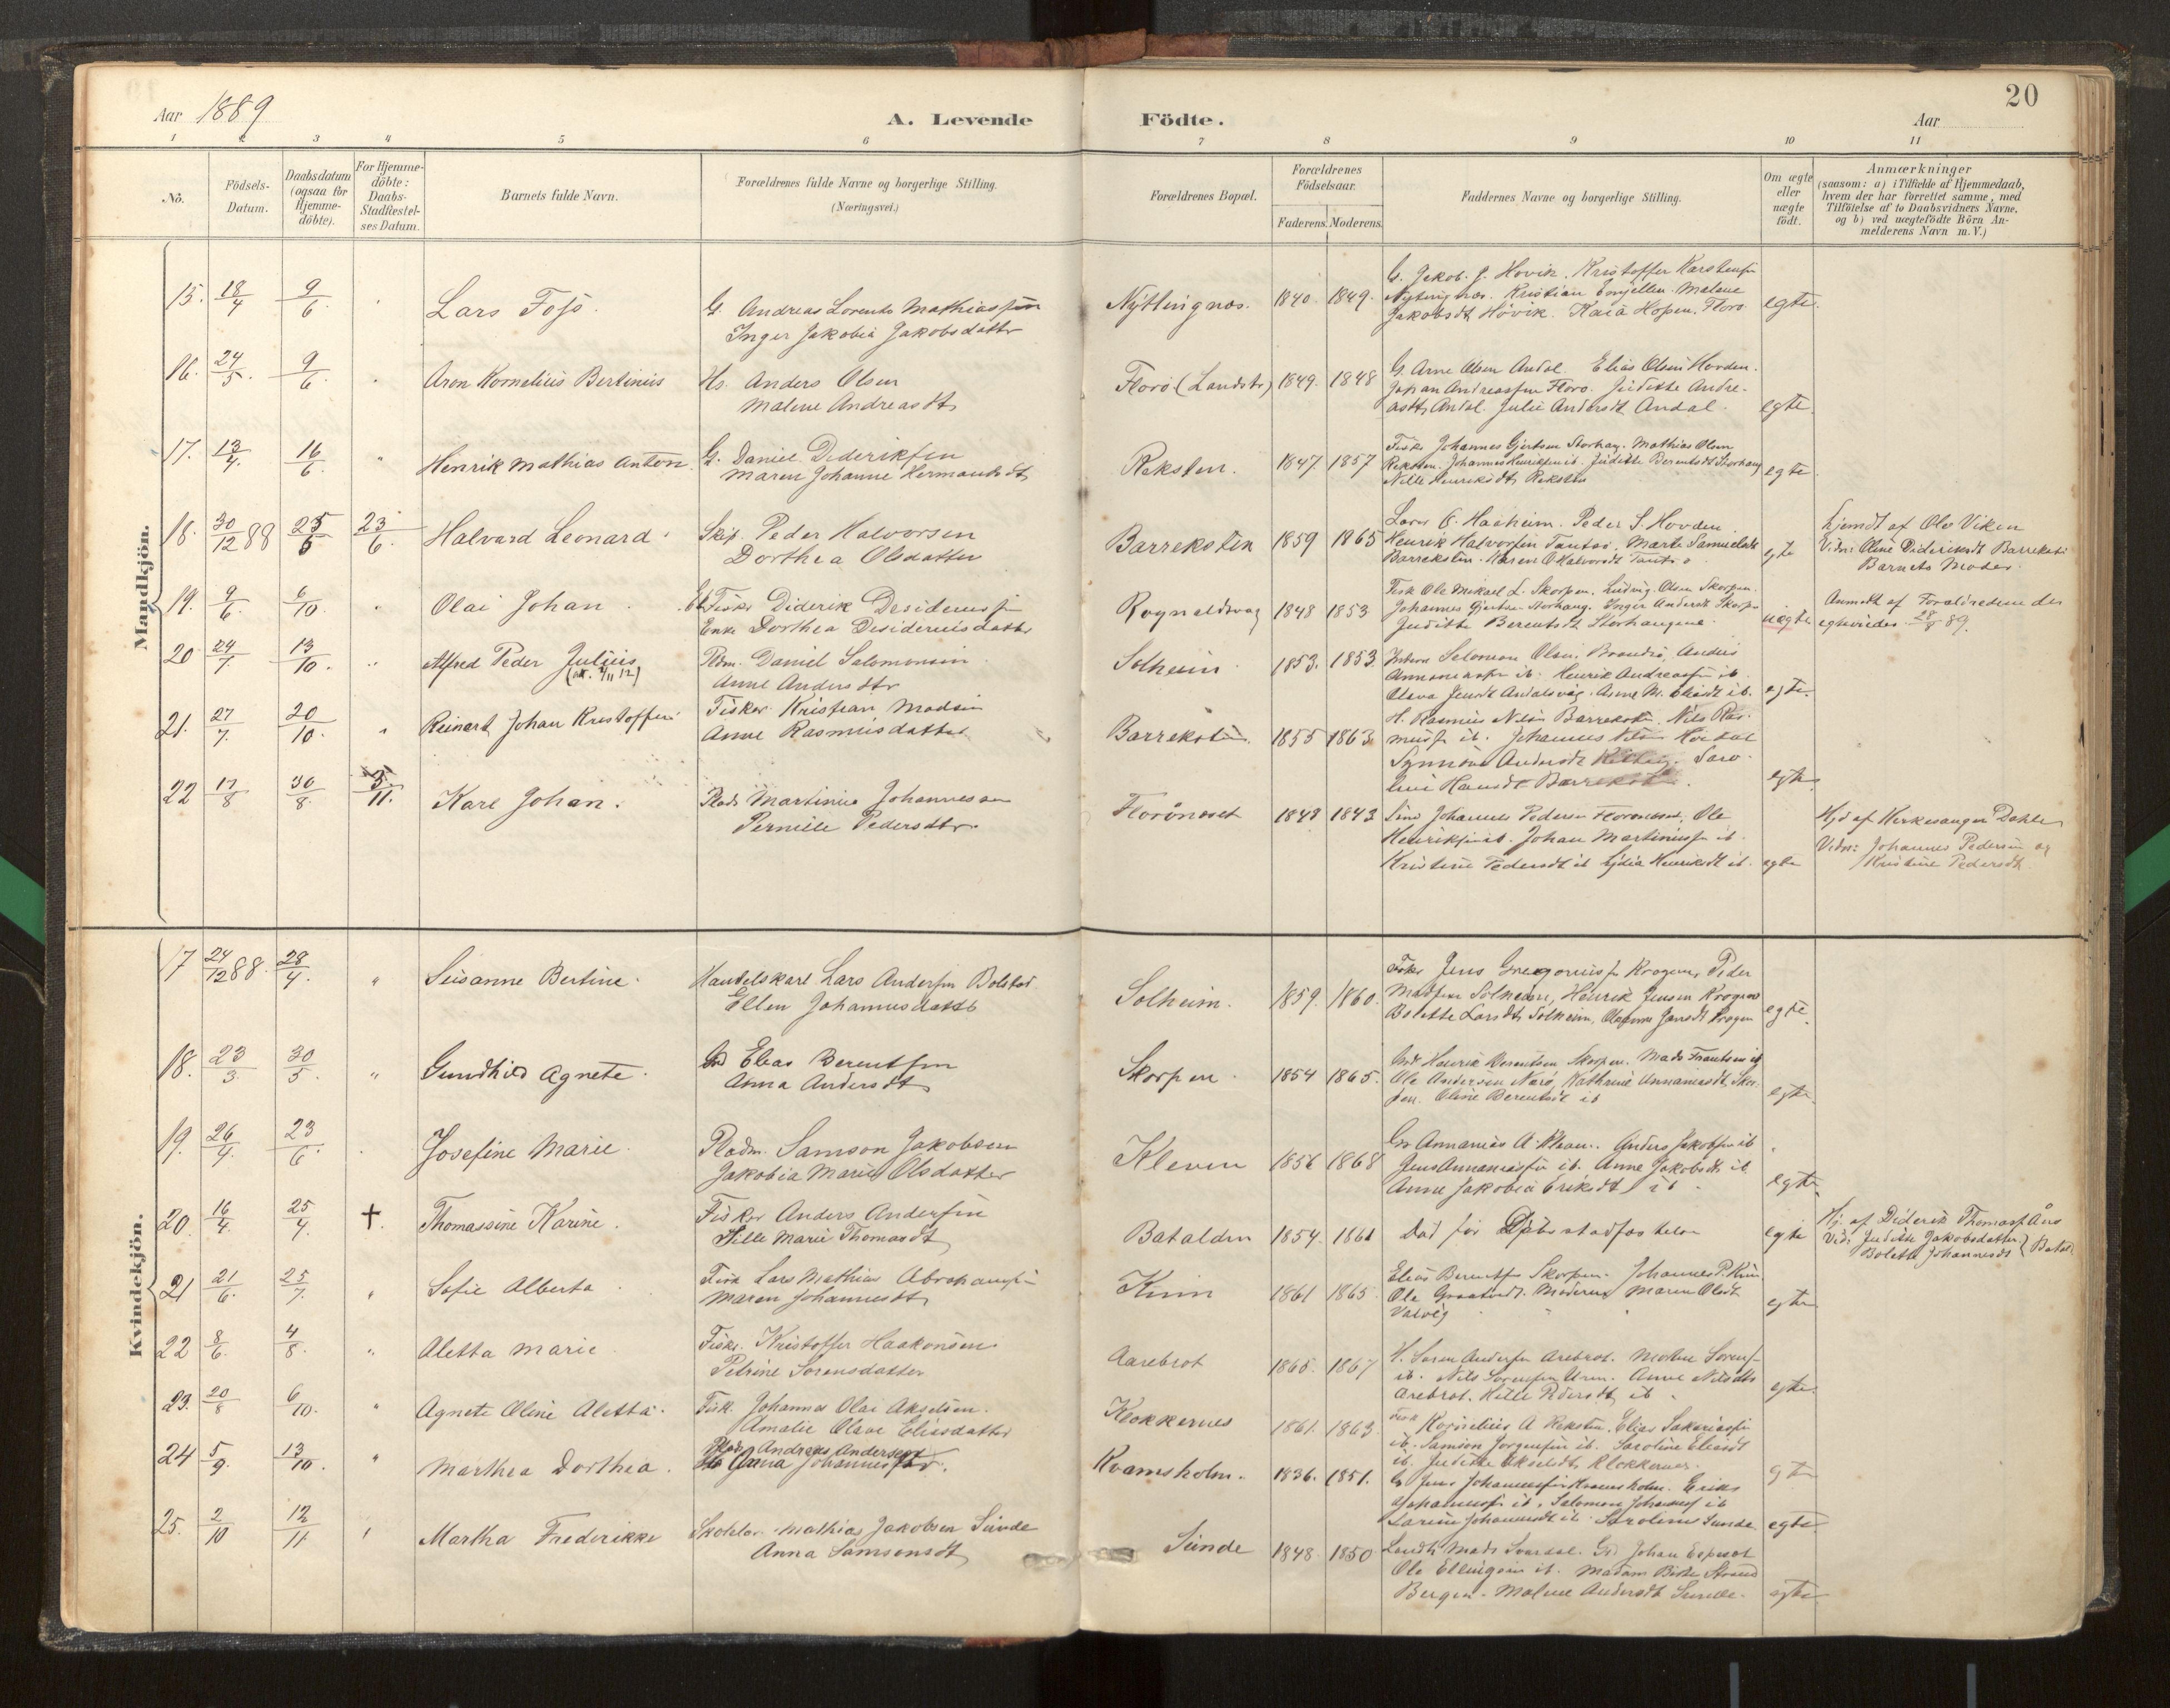 Aar 1889
A. Levende
Födte.
20
Aar
1 2 3 4 5 6 7 8 9 10 11
No.
Födsels-
Datum.
Daabsdatum
(ogsaa for
Hjemme-
döbte).
For Hjemme-
döbte:
Daabs-
Stadfæstel-
ses Datum.
Barnets fulde Navn.
Forældrenes fulde Navne og borgerlige Stilling.
(Næringsvei.)
Forældrenes Bopæl.
Forældrenes
Födselsaar.
Faderens. Moderens.
Faddernes Navne og borgerlige Stilling.
Om ægte
eller
uægte
födt.
Anmærkninger
(saasom: a) i Tilfælde af Hjemmedaab,
hvem der har forrettet samme, med
Tilföielse af to Daabsvidners Navne,
og b) ved uægtefödte Börn An-
melderens Navn m. V.)
Mandkjön.
15. 18/4 9/6 Lars Fojs.
G. Andreas Lorents Mathiassen
Inger Jakobia Jakobsdatter
Nyttingnæs. 1840. 1849.
G. Jakob J. Hovik. Kristoffer Karstensen
Nytingnæs. Kristian Malene
Jakobsdt Hovik. Kaia Hopen. Floro
egte.
16. 24/5. 9/6. Aron Kornelius Bertinius
Hs. Anders Olsen
Malene Andreasdtr
Floro (Landstr) 1849. 1848
G. Arne Olsen Andal. Elias Olsen Hovden.
Johan Andreassen Floro. Juditte Andre-
asdtr Andal. Julie Andersdt Andal.
egte.
17. 13/4. 16/6 " Henrik Mathias Anton.
G. Daniel Dideriksen
Maren Johanne Hermansdtr
Reksten. 1847 1857
Fisker Johannes Gjertsen Storhaug. Mathias Olsen
Reksten. Johannes Henriksen ib. Juditte Berentsdt Storhaug
Nille Henriksdtr Reksten
egte
18. 30/12 88 23/6 23/6. Halvard Leonard.
Skip. Peder Halvorsen
Dorthea Olsdatter
Barreksten 1859 1865
Lars O. Haaheim. Peder S. Hovden.
Henrik Halvorsen Tantso. Marte Samuelsdt
Barreksten. Karen O Halvorsdt Tantso
egte
Hjemdt af Ole Viken
Vidn: Oline Dideriksdt Barreksten
Barnets Moder.
19. 9/6. 6/10 " Olai Johan.
Fisker Diderik Desideriussen
Enke Dorthea Desideriusdatter
Rognaldsvag 1848 1853
Fisk Ole Mikael L. Skorpen. Ludvig Olsen Skorpen.
Johannes Gjertsen Storhaug. Inger Andersdt Skorpen
Juditte Berentsdt Storhaugene.
uægte
Anmeldt af Forældrene der
egteviedes 28/8 89.
20 24/7 13/10. " Alfred Peder Julius
Pldm. Daniel Salomonsen
Anne Andersdtr
Solheim. 1853. 1853.
Salomon Olsen Brandsø, Anders
Annaniassen ib. Henrik Andreassen ib.
Olava Jensdt Andalsvåg. Anne M. Eliasdt ib.
egte.
21. 27/7. 20/10. " Reinert Johan Kristoffer
Fisker Kristian Madsen
Anne Rasmusdatter
Barreksten. 1855 1863
H. Rasmus Nilsen Barreksten. Nils Ras-
mussen ib. Johannes Nilsen
Synnøve Andersdt Saro-
line Hansdt Barreksten.
egte
22 17/8 30/8. 3/11. Karl Johan.
Plads Martinius Johannessen
Pernille Pedersdtr.
Floronæset 1843 1843
Johannes Pedersen Floronæset, Ole
Henriksen ib. Johan Martiniussen ib.
Kristine Pedersdt ib Lydia Henriksdt ib.
egte
Hjd af Kirkesanger Dahle
Vidn: Johannes Pedersen og
Kristine Pedersdt
Kvindekjön.
17 24/12 88. 28/4. " Susanne Bertine.
Handelskarl Lars Andersen Bolstad.
Ellen Johannesdatter
Solheim. 1859. 1860.
Fisker Jens Gregoriussen Krogen, Peder
Madsen Solheim, Henrik Jensen Krogen
Bolette Larsdtr Solheim, Jensdt Krogen
egte.
18. 23/3 30/5. " Gundhild Agnete.
Gd Elias Berentsen
Anna Andersdtr
Skorpen. 1854 1865.
Henrik Berentsen Skorpen. Mads Frantsen ib
Ole Andersen Naro, Kathrine Annaniasdt Skor-
pen. Oline Berentsdt ib
egte.
19. 26/4. 23/6. Josefine Marie.
Pladsm. Samson Jakobsen
Jakobia Marie Olsdatter
Kleven 1856 1868
Gr Annanias A. Kleven. Anders Jakobsen ib
Jens Annaniassen ib. Anne Jakobsdt ib.
Anne Jakobia Eriksdt ib.
egte.
20. 16/4. 25/4. †. Thomassine Karine.
Fisker Anders Andersen
Sille Marie Thomasdt
Batalden 1854. 1861
Død før Daabsstadfæstelse
egte
Hj. af Diderik Thomass.
Vidn: Juditte Jakobsdatter
Bolette Johannesdt } Batal.
21 21/6. 25/7. " Sofie Alberta.
Fisk Lars Mathias Abrahamsen
Maren Johannesdt
Kinn 1861 1865.
Elias Berentsen Skorpen. Johannes P. Kinn
Ole Moderen, Maren Olsdt
Valvåg
egte
22 8/6. 4/8. " Aletta Marie.
Fisker. Kristoffer Haakonsen.
Petrine Sørensdatter
Aarebrot 1865. 1867
H. Søren Andersen Arebrot. Sørens-
ib. Nils Sørensen Anne Nilsdtr
Arebrot. Pedersdt ib.
egte.
23. 20/8 6/10. " Agnete Oline Aletta.
Fisk. Johannes Olai Akselsen.
Amalie Olava Eliasdatter
Klokkernes 1861. 1863.
Fisk Kornelius A Reksten, Elias Sakariassen
ib. Samson Jorgensen ib. Saroline Eliasdt
ib. Juditte Akselsdt Klokkernes.
24 5/9. 13/10. " Marthea Dorthea.
Andreas Andersen
Anna Johannesdtr.
Kvamsholm. 1836. 1851.
G Jens Johannessen Kvamsholm. Eriks
Johannessen ib, Salomon Johannes ib
Larine Johannesdt ib. Saroline Sunde
egte
25. 2/10 12/11. Martha Frederikke
Skolelær. Mathias Jakobsen Sunde
Anna Samsonsdt
Sunde 1848. 1850
Landh Mads Svardal. Gd Johan Espeset
Ole Ellingsen ib. Madam Strand
Bergen. Malene Andersdt Sunde.
egte